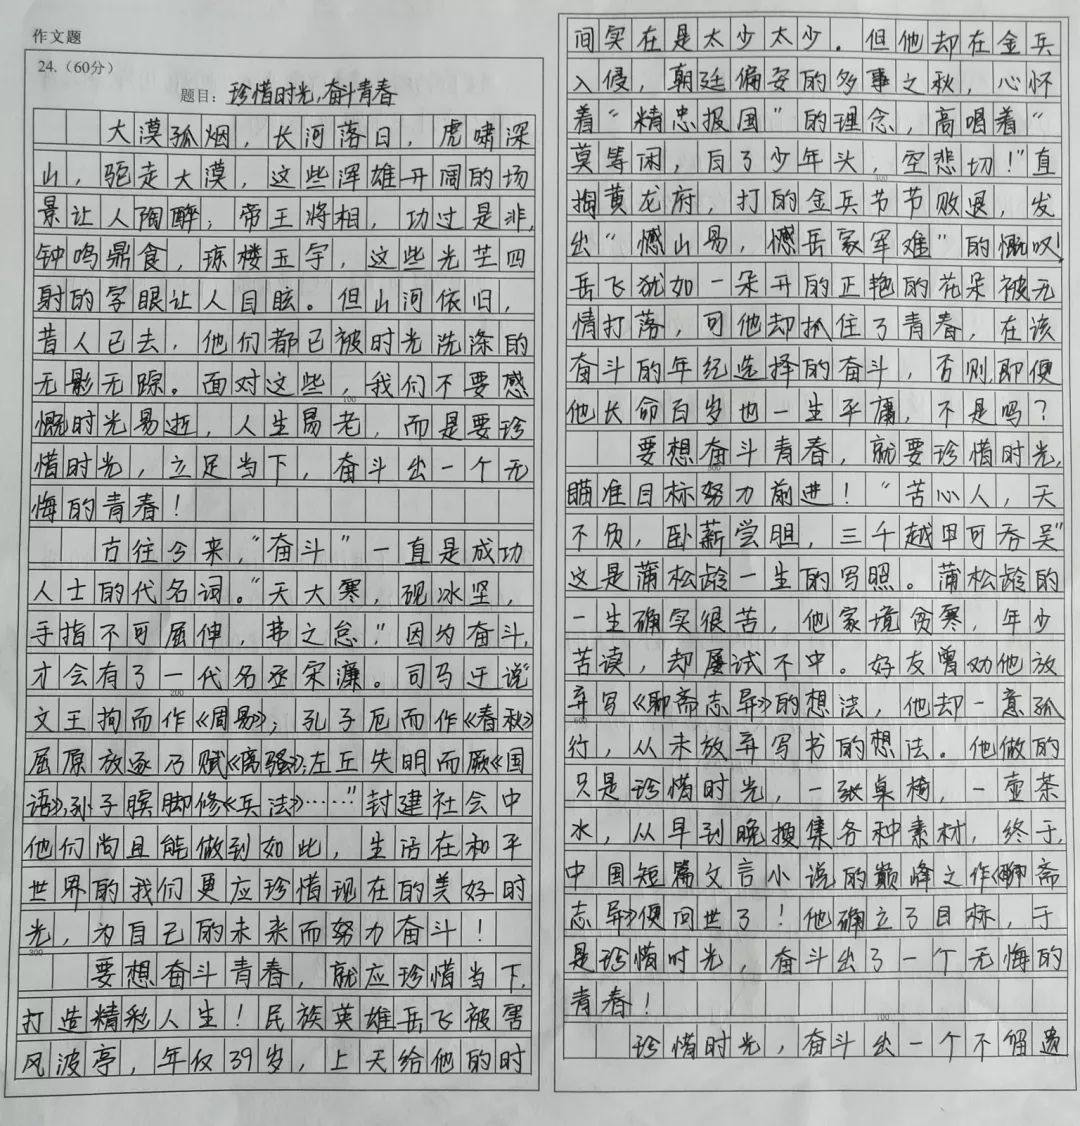 作文题
24.（60分）
题目：珍惜时光，奋斗青春
大漠孤烟，长河落日，虎啸深
山，驼走大漠，这些浑雄开阔的场
景让人陶醉；帝王将相，功过是非，
钟鸣鼎食，琼楼玉宇，这些光芒四
射的字眼让人目眩。但山河依旧，
昔人已去，他们都已被时光洗涤的
无影无踪。面对这些，我们不要感
100
慨时光易逝，人生易老，而是要珍
惜时光，立足当下，奋斗出一个无
悔的青春！
古往今来，“奋斗”一直是成功
人士的代名词。“天大寒，砚冰坚，
手指不可屈伸，弗之怠。”因为奋斗，
才会有了一代名丞宋濂。司马迁说“
200
文王拘而作《周易》；孔子厄而作《春秋》
屈原放逐乃赋《离骚》；左丘失明而厥《国
语》，孙子膑脚修《兵法》……”封建社会中
他们尚且能做到如此，生活在和平
世界的我们更应珍惜现在的美好时
光，为自己的未来而努力奋斗！
300
要想奋斗青春，就应珍惜当下，
打造精彩人生！民族英雄岳飞被害
风波亭，年仅39岁，上天给他的时
间实在是太少太少．但他却在金兵
入侵，朝廷偏安的多事之秋，心怀
着“精忠报国”的理念，高唱着“
莫等闲，白了少年头，空悲切！”直
捣黄龙府，打的金兵节节败退，发
出“憾山易，憾岳家军难”的慨叹！
岳飞犹如一朵开的正艳的花朵被无
情打落，可他却抓住了青春，在该
奋斗的年纪选择的奋斗，否则，即便
他长命百岁也一生平庸，不是吗？
要想奋斗青春，就要珍惜时光，
500
瞄准目标努力前进！“苦心人，天
不负，卧薪尝胆，三千越甲可吞吴”
这是蒲松龄一生的写照。蒲松龄的
一生确实很苦，他家境贫寒，年少
苦读，却屡试不中。好友曾劝他放
弃写《聊斋志异》的想法，他却一意孤
600
行，从未放弃写书的想法。他做的
只是珍惜时光，一张桌椅，一壶茶
水，从早到晚搜集各种素材，终于，
中国短篇文言小说的巅峰之作《聊斋
志异》便问世了！他确立了目标，于
是珍惜时光，奋斗出了一个无悔的
青春！
700
珍惜时光，奋斗出一个不留遗